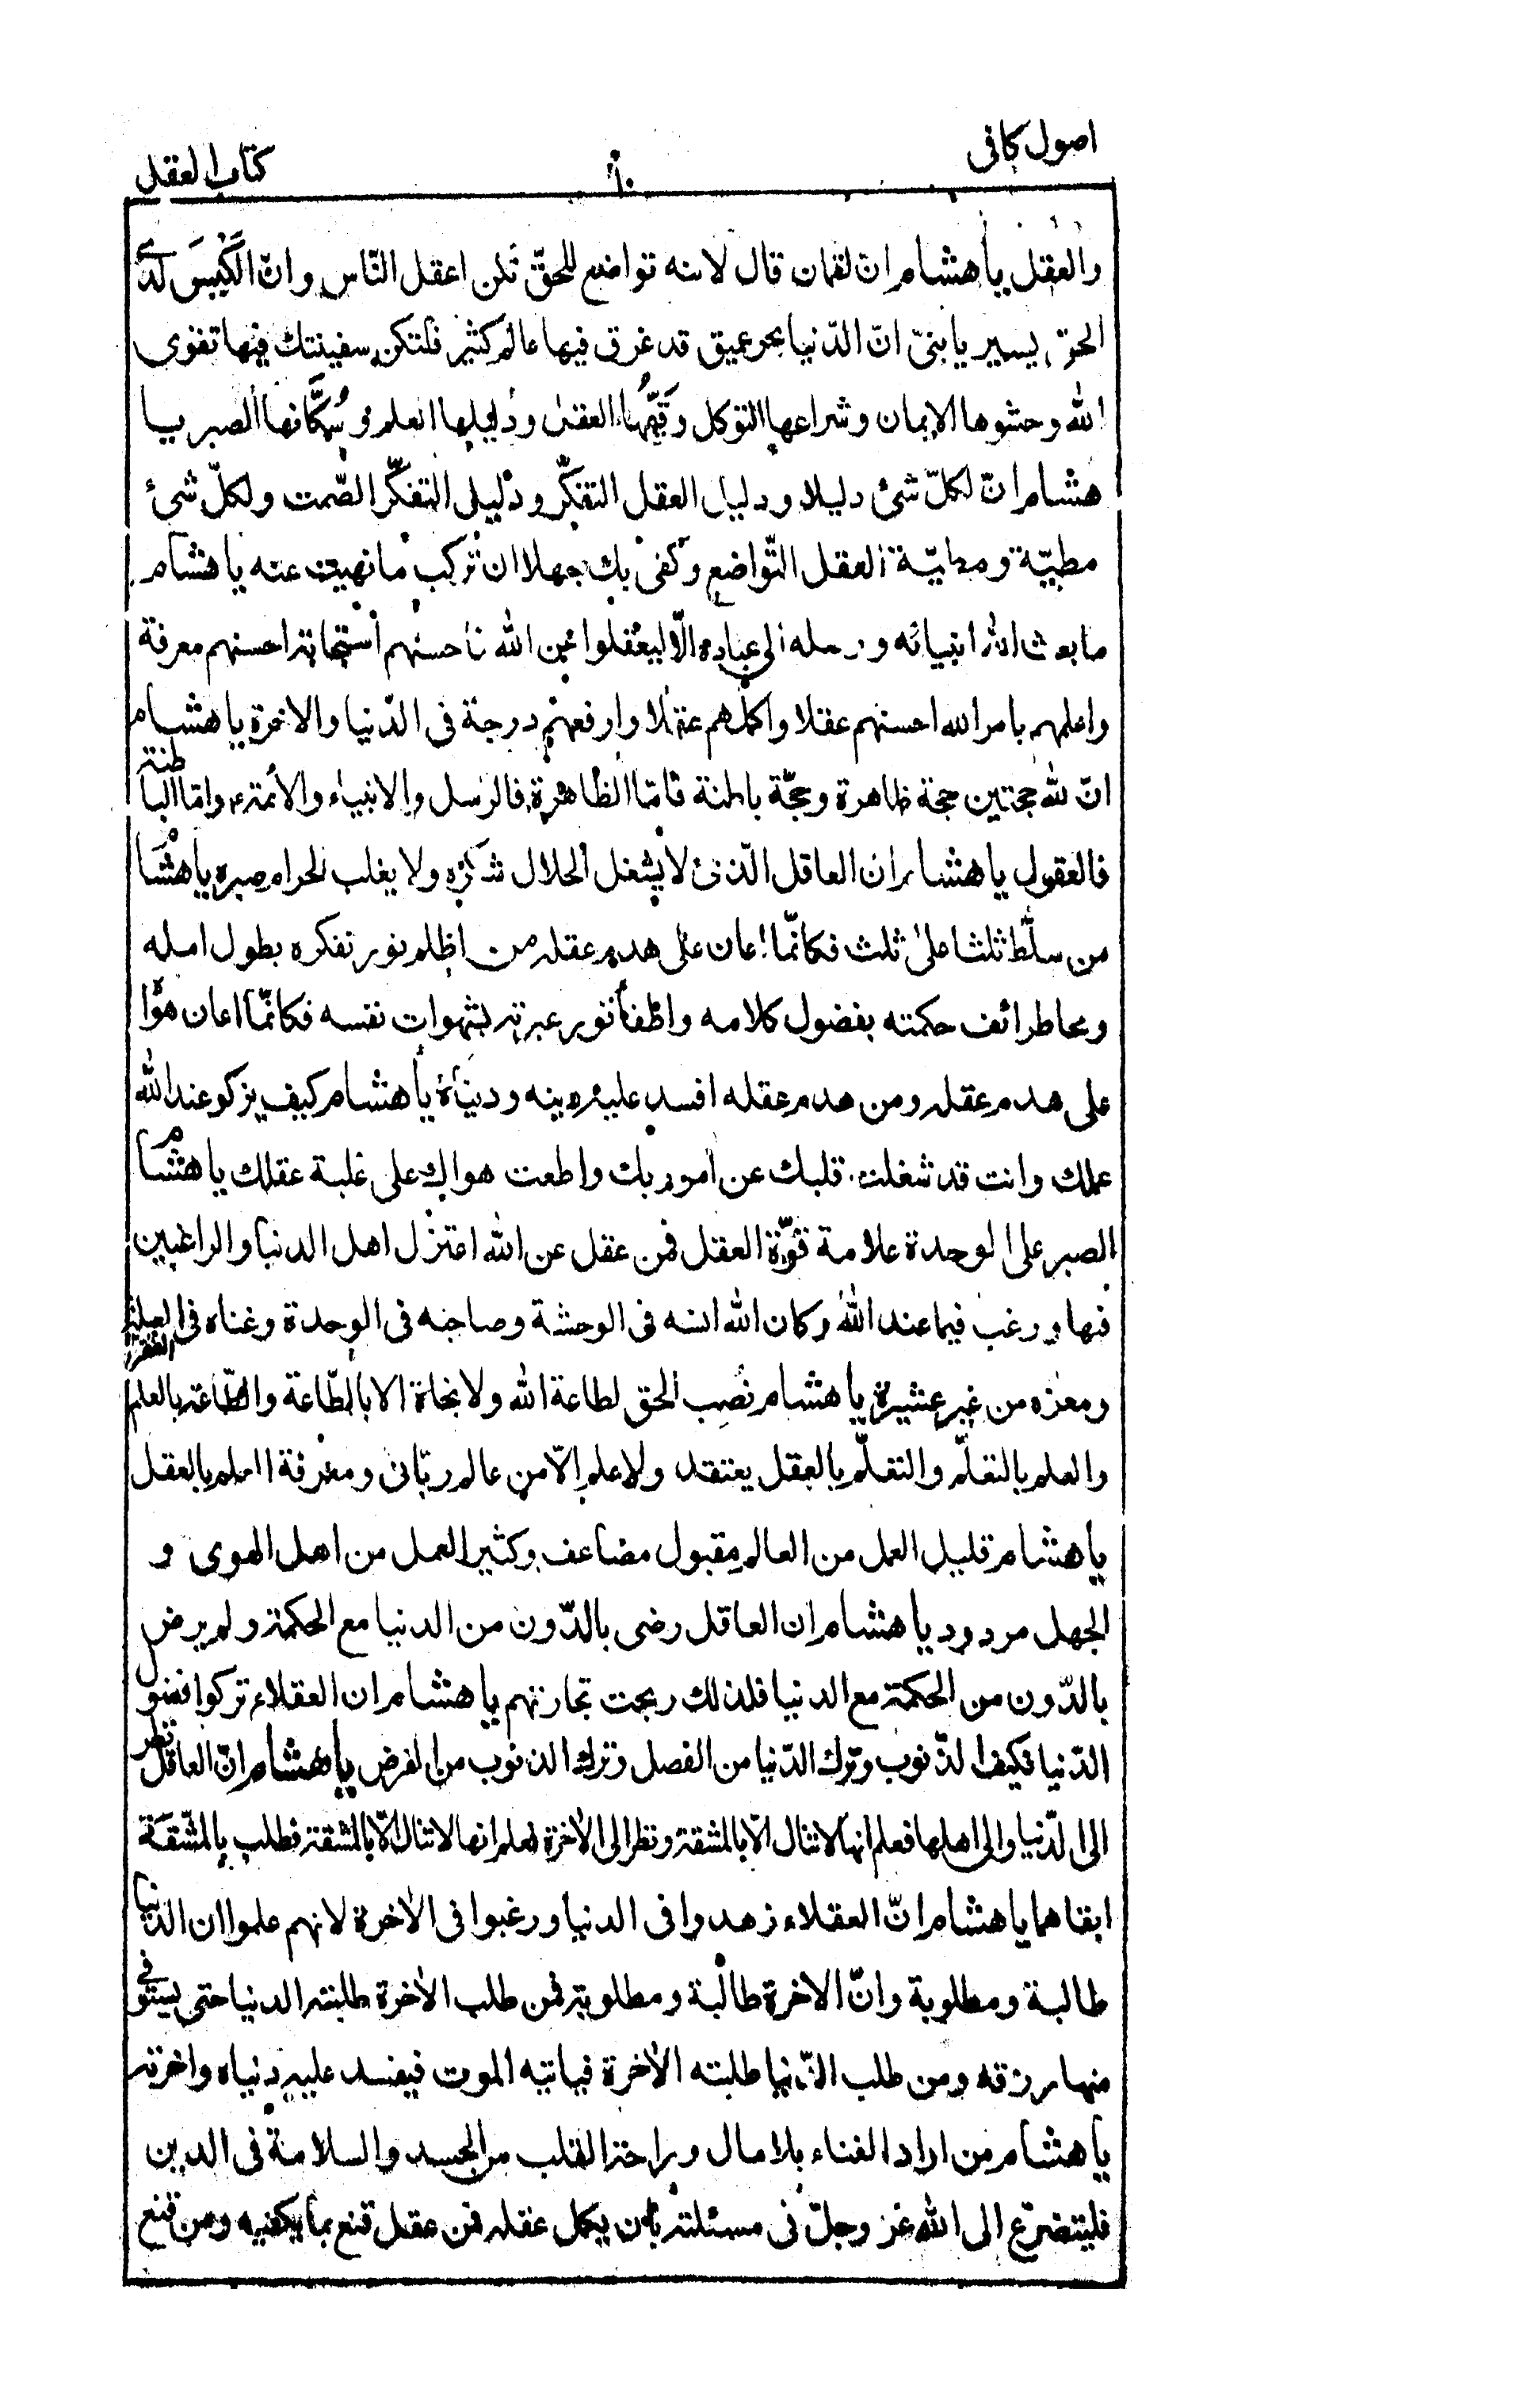 اصول كافى
١٠
كتاب العقل
والعقل ياهشام ان لقمان قال لابنه تواضع للحقّ تكن اعقل النّاس وانّ الكَيِّسَ لدى
الحق يسير يابنىّ انّ الدّنيا بحر عميق قد غرق فيها عالم كثير فلتكن سفينتك فيها تقوى
الله وحشوها الايمان وشراعها التوكل وقَيّمُها العقل ودليلها العلم وسُكّانها الصبر يا
هشام انّ لكلّ شئ دليلا ودليل العقل التفكّر ودليل التفكّر الصّمت ولكلّ شئ
مطيّة ومطيّة العقل التّواضع وكفى بك جهلا ان تركب ما نهيت عنه ياهشام
مابعث الله انبيائه ورسله الى عباده الّا ليعقلوا عن الله فاحسنهم استجابة احسنهم معرفة
واعلمهم بامر الله احسنهم عقلا واكملهم عقلا وارفعهم درجة فى الدّنيا والاخرة ياهشام
انّ لله حجتين حجة ظاهرة وحجّة باطنة فامّا الظّاهرة فالرسل والانبياء والائمّة ع وامّا الباطنة
فالعقول ياهشام ان العاقل الّذى لايشغل الحلال شكره ولا يغلب الحرام صبره ياهشام
من سلّط ثلثا على ثلث فكانّما اعان على هدم عقله من اظلم نور تفكره بطول امله
ومحا طرائف حكمته بفضول كلامه واطفأ نور عبرته بشهوات نفسه فكانّما اعان هواه
على هدم عقله ومن هدم عقله افسد عليه دينه ودنياه ياهشام كيف يزكو عند الله
عملك وانت قد شغلت قلبك عن امور ربك واطعت هواك على غلبة عقلك ياهشام
الصبر على الوحدة علامة قوّة العقل فمن عقل عن الله اعتزل اهل الدنيا والراغبين
فيها ورغب فيما عند الله وكان الله انسه فى الوحشة وصاحبه فى الوحدة وغناه فى العيلة
ومعزه من غير عشيرة ياهشام نُصِب الحق لطاعة الله ولا نجاة الا بالطّاعة والطّاعة بالعلم
والعلم بالتعلّم والتعلّم بالعقل يعتقد ولا علم الّا من عالم ربّانى ومعرفة العلم بالعقل
ياهشام قليل العمل من العالم مقبول مضاعف وكثير العمل من اهل الهوى و
الجهل مردود ياهشام ان العاقل رضى بالدّون من الدنيا مع الحكمة ولم يرض
بالدّون من الحكمة مع الدنيا فلذلك ربحت تجارتهم ياهشام ان العقلاء تركوا فضول
الدّنيا فكيف الذّنوب وترك الدّنيا من الفضل وترك الذنوب من الفرض ياهشام انّ العاقل نظر
الى الدّنيا والى اهلها فعلم انها لاتنال الّا بالمشقة ونظر الى الاخرة فعلم انها لاتنال الّا بالمشقة فطلب بالمشقة
ابقاهما ياهشام انّ العقلاء زهدوا فى الدنيا ورغبوا فى الاخرة لانهم علموا ان الدّنيا
طالبة ومطلوبة وانّ الاخرة طالبة ومطلوبة فمن طلب الاخرة طلبته الدنيا حتى يستوفى
منها رزقه ومن طلب الدّنيا طلبته الاخرة فياتيه الموت فيفسد عليه دنياه واخرته
ياهشام من اراد الغناء بلا مال وراحة القلب من الحسد والسلامة فى الدين
فليتضرّع الى الله عز وجلّ فى مسئلته بأن يكمل عقله فمن عقل قنع بما يكفيه ومن قنع